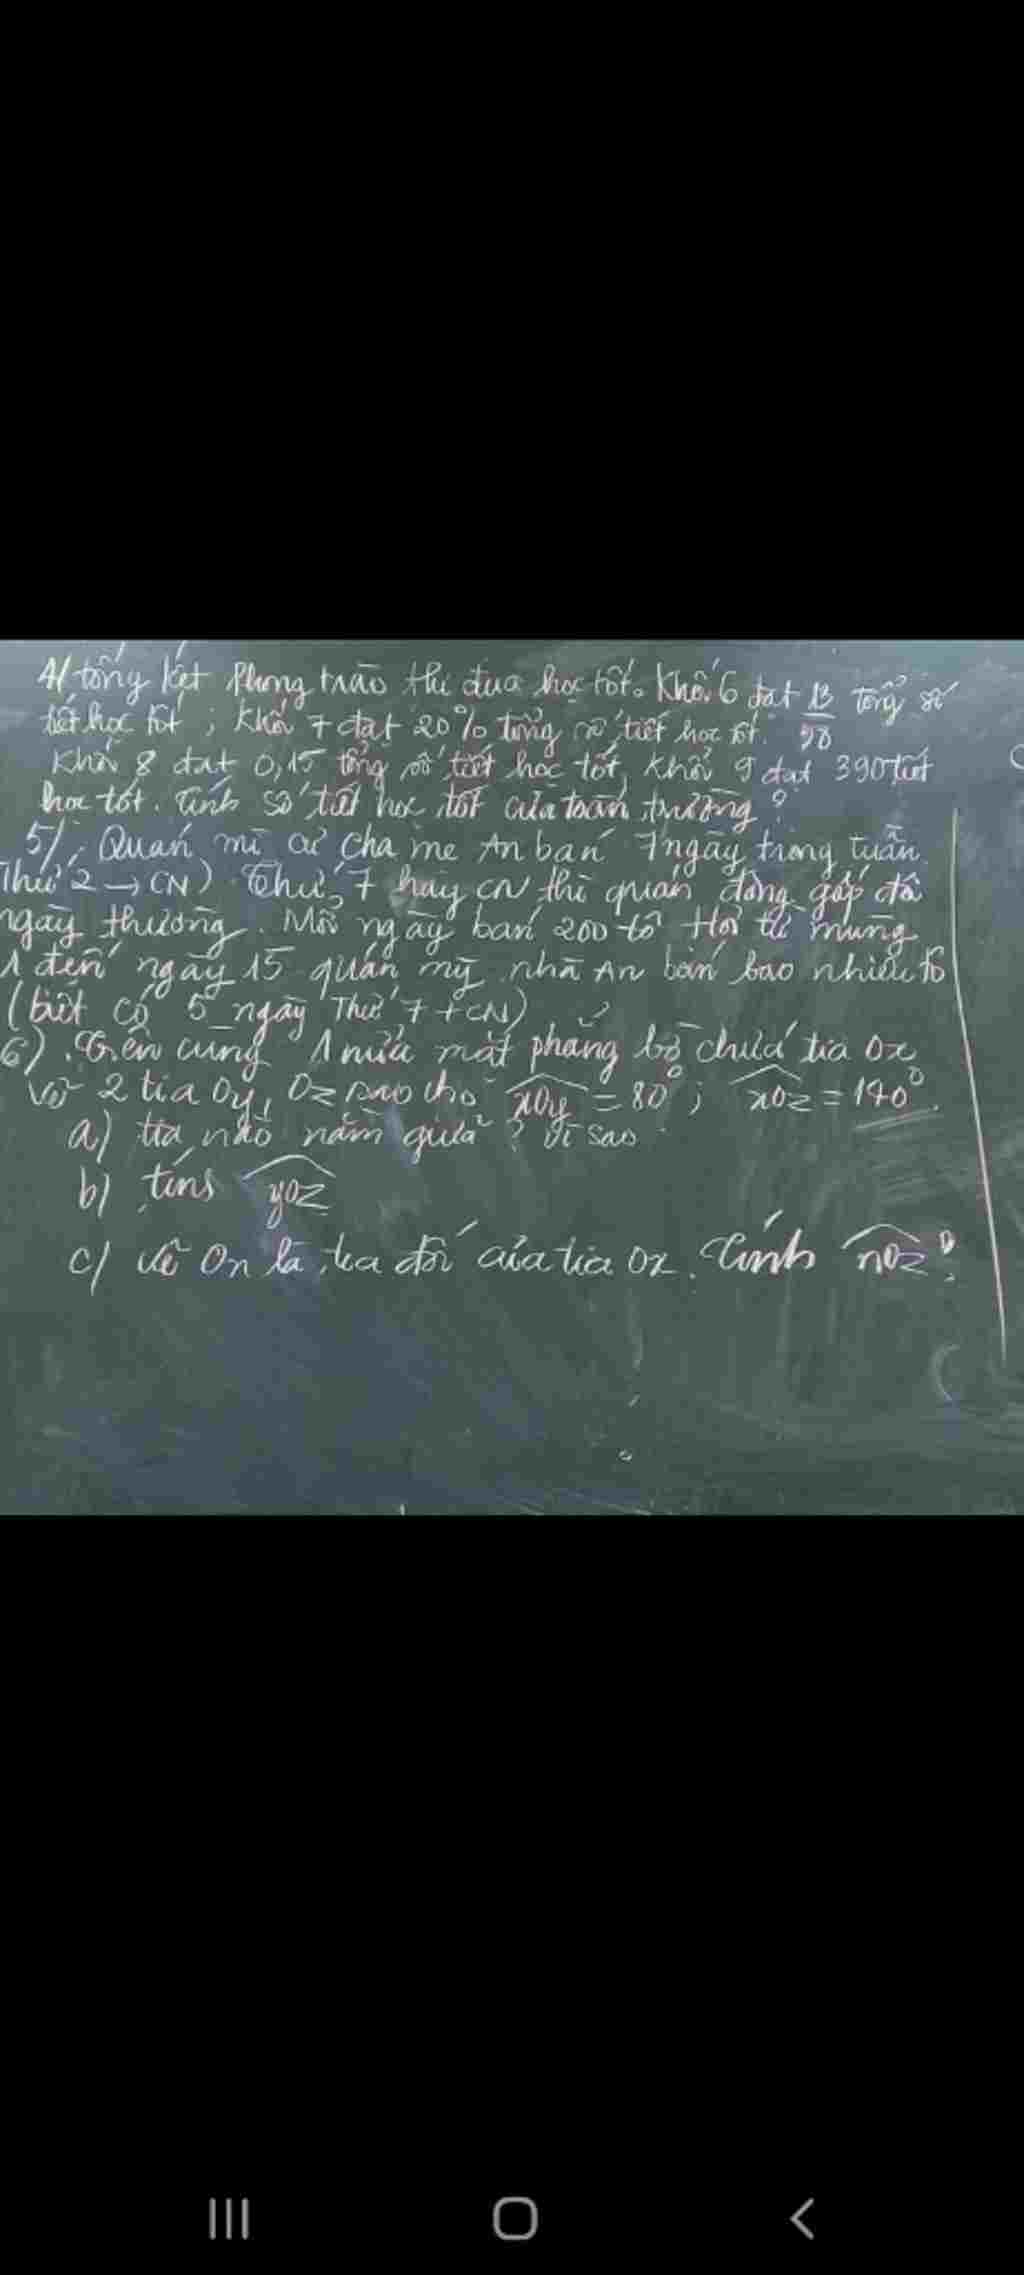 4/ tổng kết phong trào thi đua học tốt. Khối 6 đạt 13/50 tổng số
tiết học tốt ; khối 7 đạt 20% tổng số tiết học tốt.
Khối 8 đạt 0,15 tổng số tiết học tốt, khối 9 đạt 390 tiết
học tốt. Tính số tiết học tốt của toàn trường ?
5/ Quán mì cử cha mẹ An bán 7 ngày trong tuần
Thứ 2 → CN) Thứ 7 hay CN thì quán đông gấp đôi
ngày thường. Mỗi ngày bán 200 tô Hỏi từ mùng
1 đến ngày 15 quán mỳ nhà An bán bao nhiêu tô
(biết có 5 ngày Thứ 7 + CN)
6) Trên cùng 1 nửa mặt phẳng bờ chứa tia Ox
Vẽ 2 tia Oy, Oz sao cho xOy = 80° ; xOz = 140°.
a) tia nào nằm giữa ? Vì sao
b) tính yOz
c) vẽ On là tia đối của tia Ox. Tính nOz ?